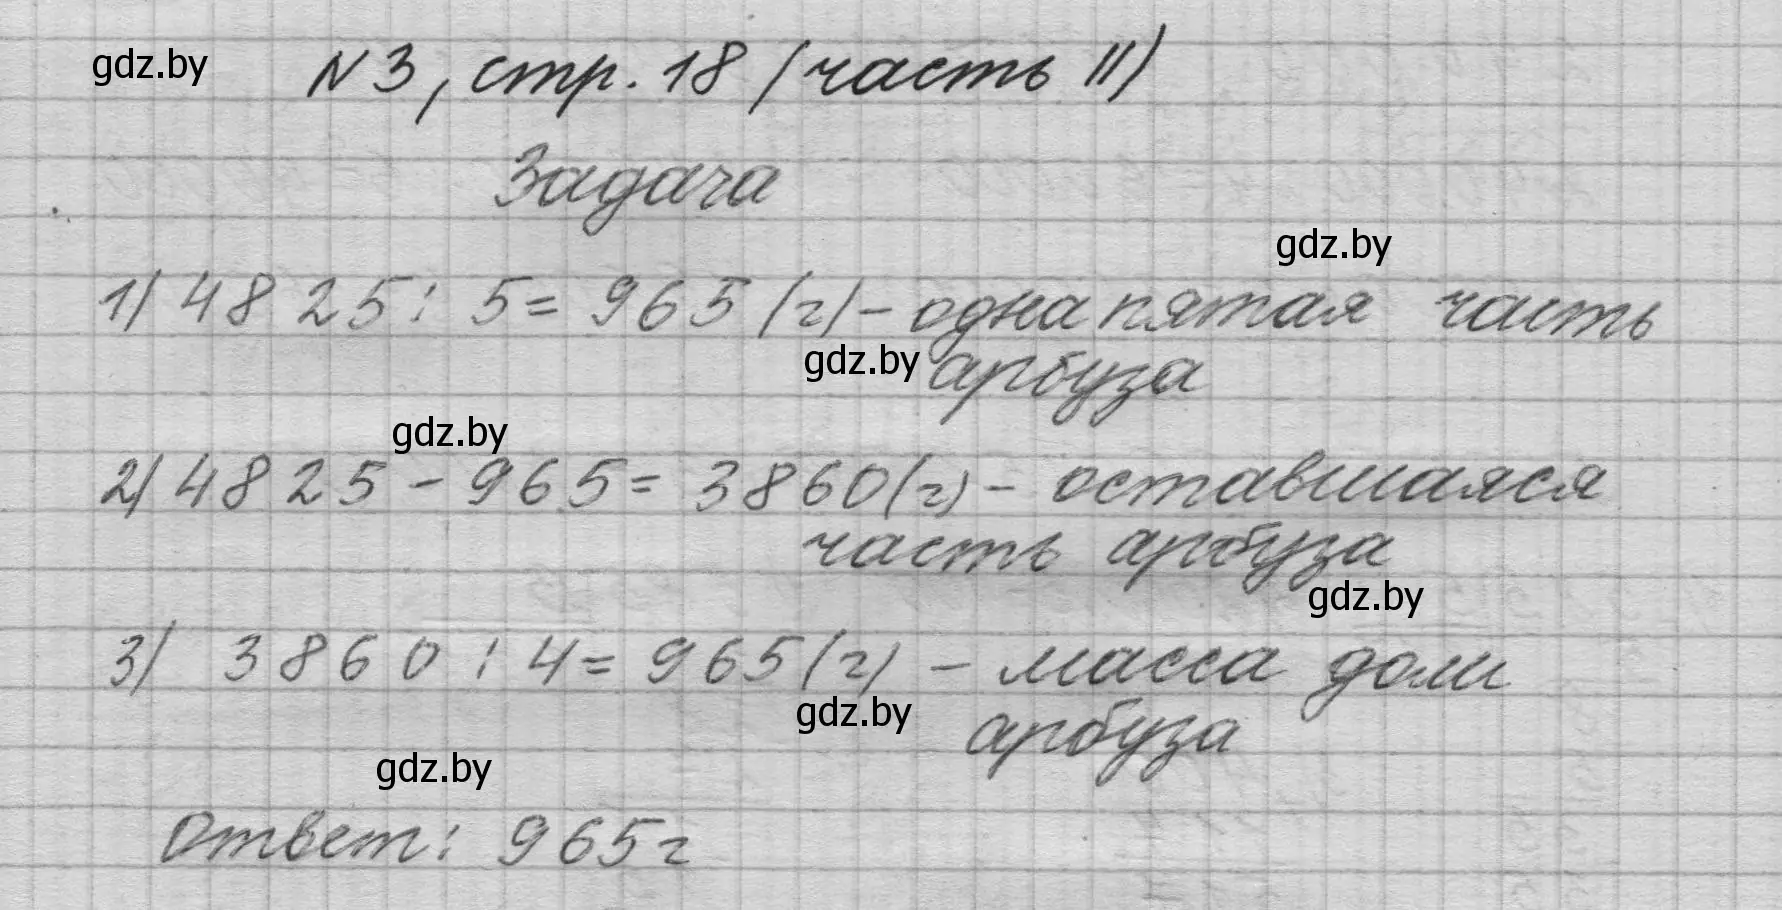 gdz.by
N3, стр. 18 (часть II)
Задача
gdz.by
1) 4825 : 5 = 965 (г) - одна пятая часть
gdz.by
арбуза
gdz.by
2) 4825 - 965 = 3860 (г) - оставшаяся
часть арбуза
gdz.by
3) 3860 : 4 = 965 (г) - масса доли
gdz.by
арбуза
gdz.by
Ответ: 965 г